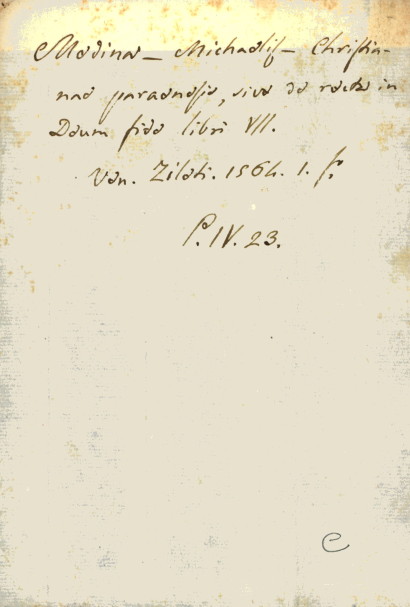 Medinae – Michaelis – Christia-
nae paraenesis, sive de recta in
Deum fide libri VII.
Ven. Zileti. 1564. 1. f.
P. IV. 23.
C